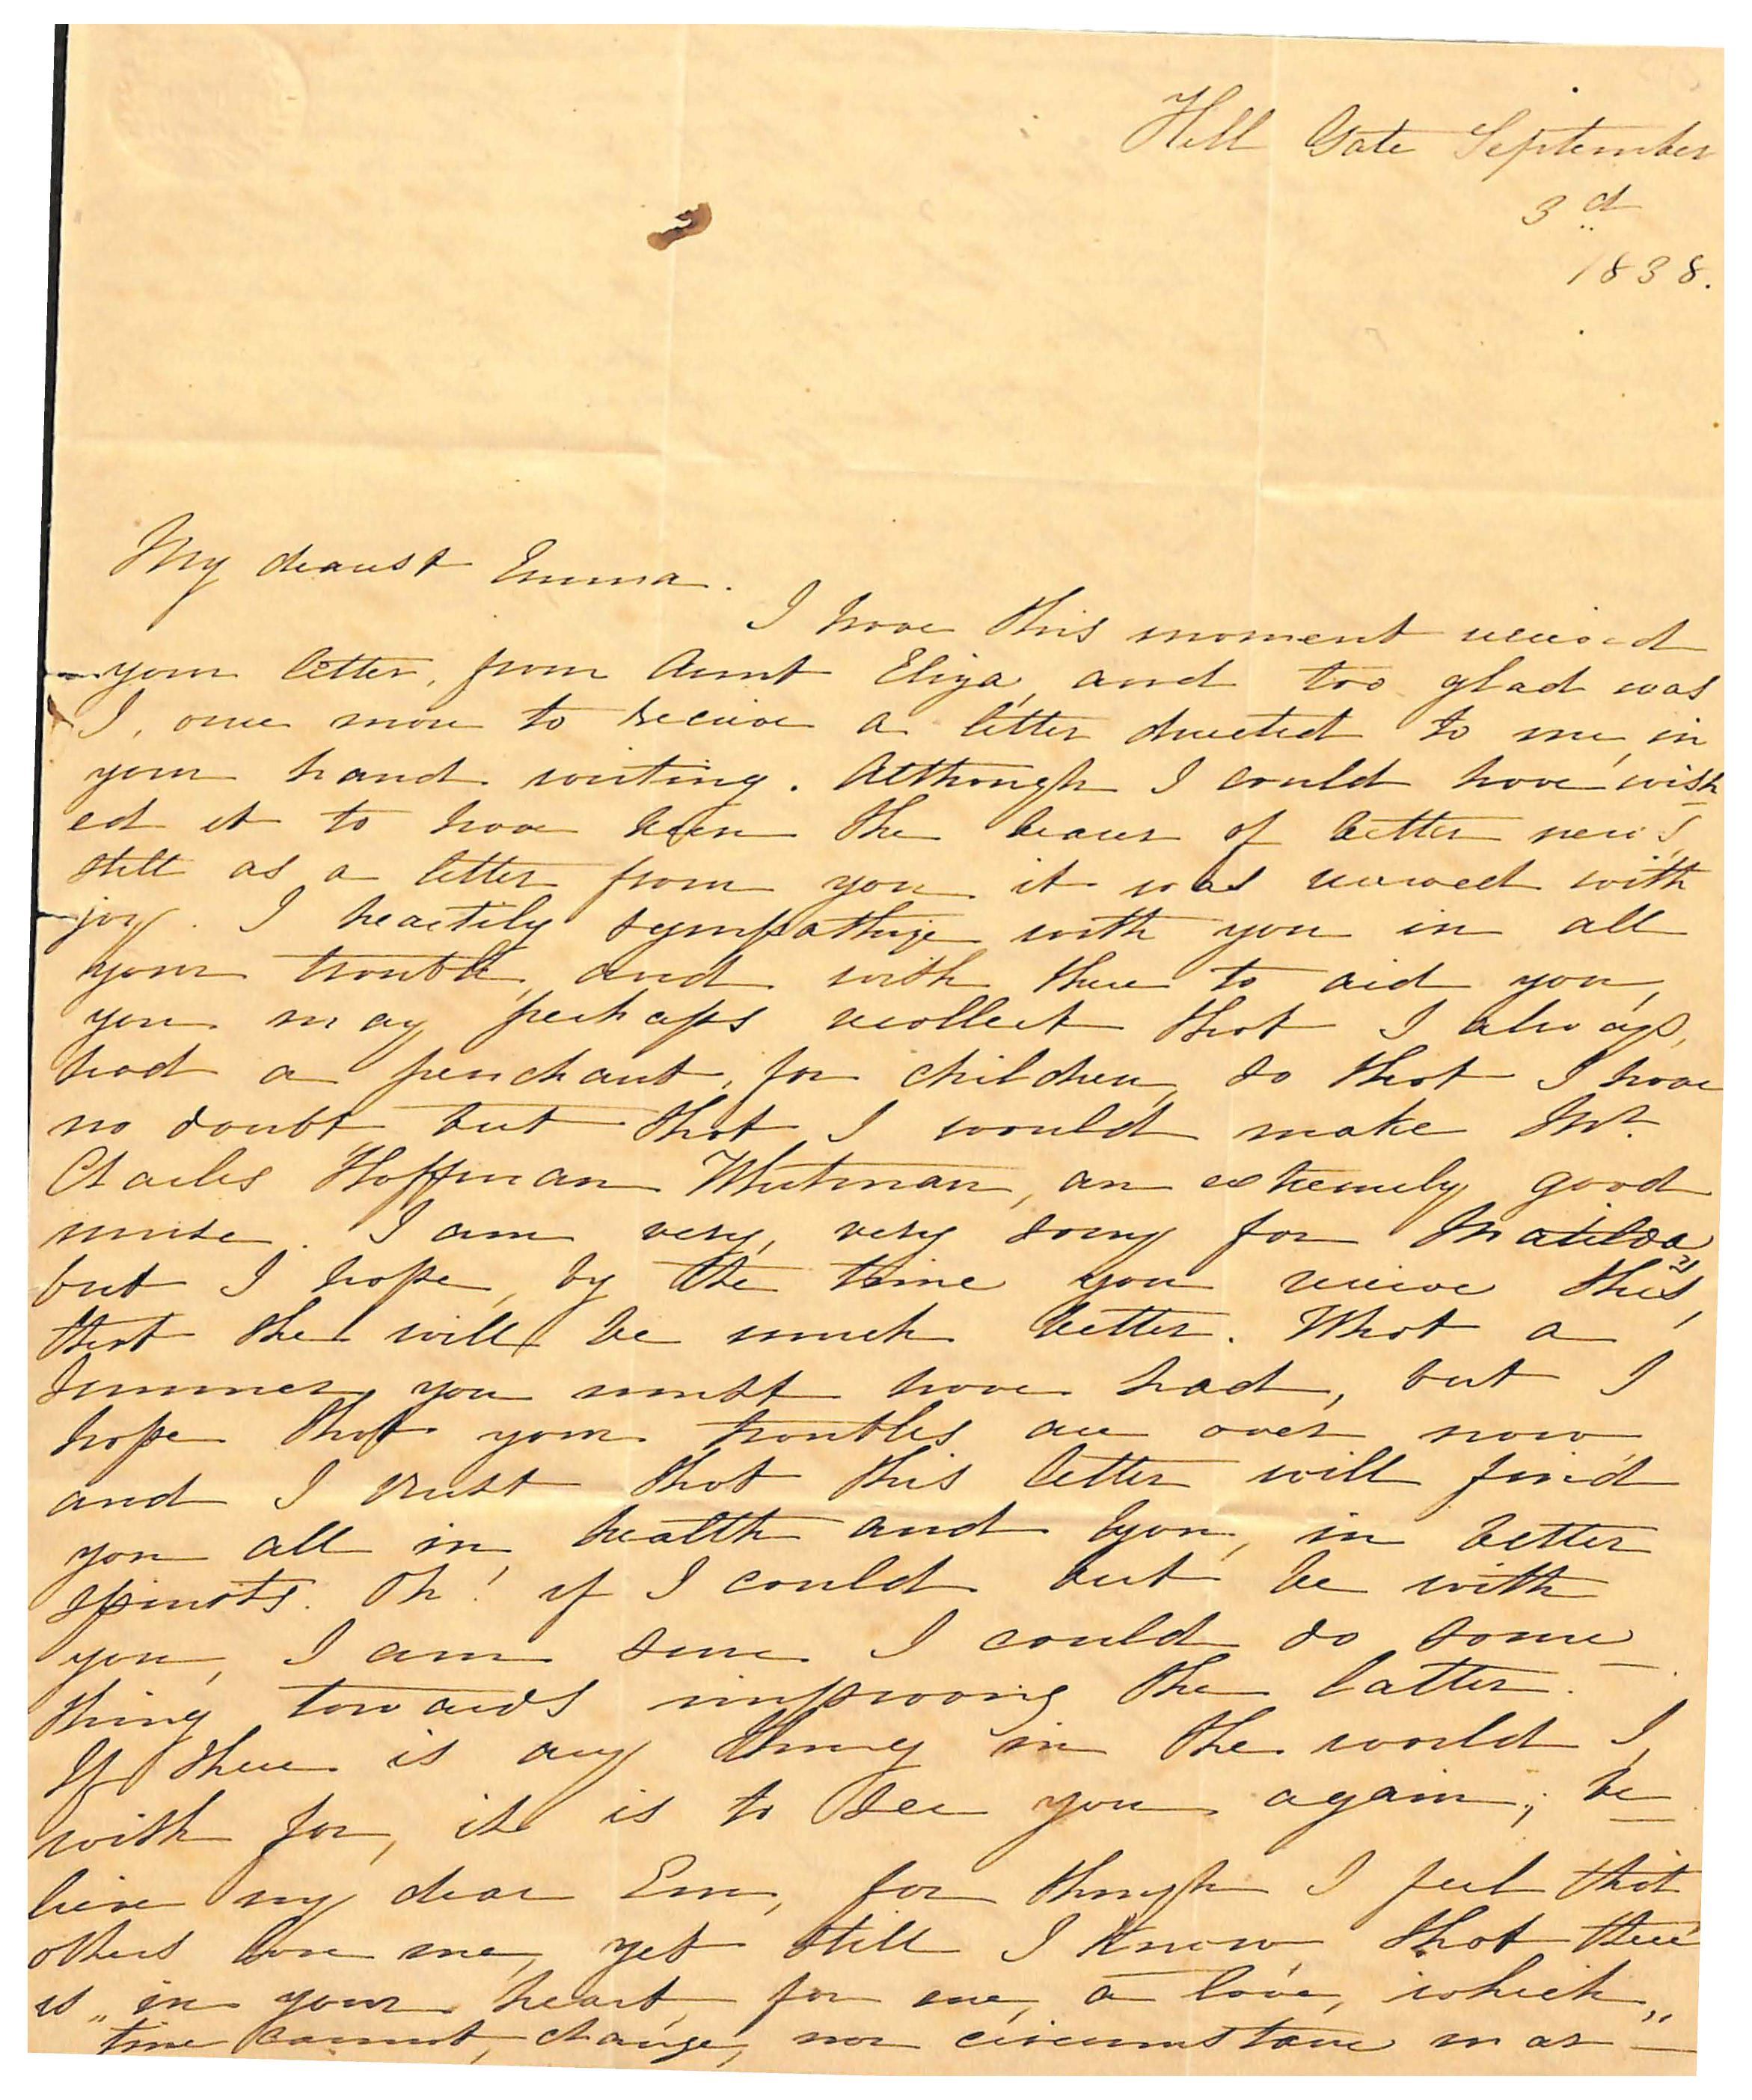 Hell Gate September
3d
1838.
My dearest Emma.
I have this moment received
your letter, from Aunt Eliza, and too glad was
I, once more to receive a letter directed to me, in
your hand writing. Although I could have wish
ed it to have been the bearer of better news,
still as a letter from you it was received with
joy. I heartily sympathize with you in all
your trouble, and wish there to aid you,
you may perhaps recollect that I always,
had a penchant, for children, so that I have
no doubt but that I would make Mr.
Charles Hoffman Whitman, an extremely good
nurse. I am very, very sorry for Matilda,
but I hope, by the time you receive this,
that she will be much better. What a
summer you must have had, but I
hope that your troubles are over now,
and I trust that this letter will find
you all in health and you, in better
spirits. Oh! if I could but be with
you, I am sure I could do some
thing towards improving the latter.
If there is any thing in the world I,
wish for, it is to see you again, be
lieve my dear Em, for though I feel that
others love me, yet still I know that there
is "in your heart, for me, a love, which,,
time cannot, change, nor circumstance mar